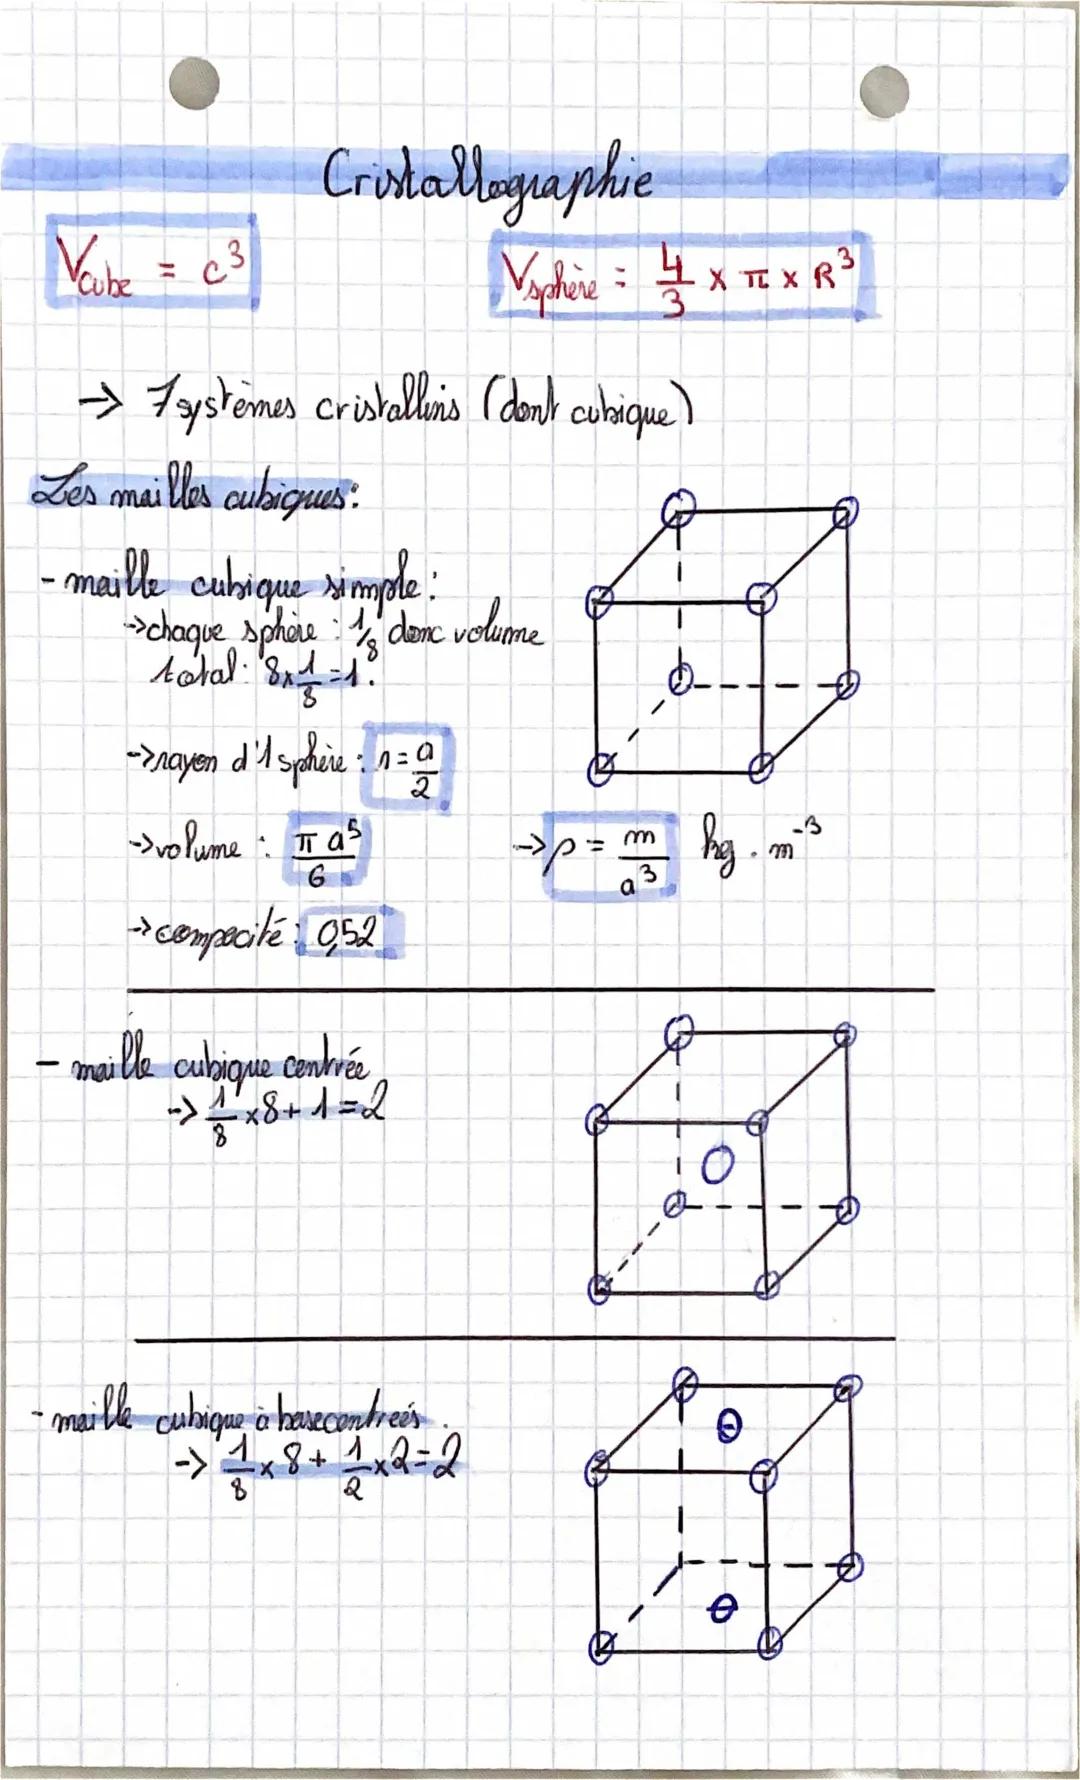 Cristallographie
Vcube = c³
Vsphère = 4/3 x π x R³
→ 7 systèmes cristallins (dont cubique)
Les mailles cubiques:
- maille cubique simple:
→ chaque sphère : 1/8 donc volume
total: 8x1/8=1.
→ rayon d'1 sphère : r = a/2
→ volume : πa⁵/6
→ ρ = m/a³ kg.m⁻³
→ compacité: 0,52
- maille cubique centrée
→ 1/8 x 8 + 1 = 2
- maille cubique à base centreés.
→ 1/8 x 8 + 1/2 x 2 = 2